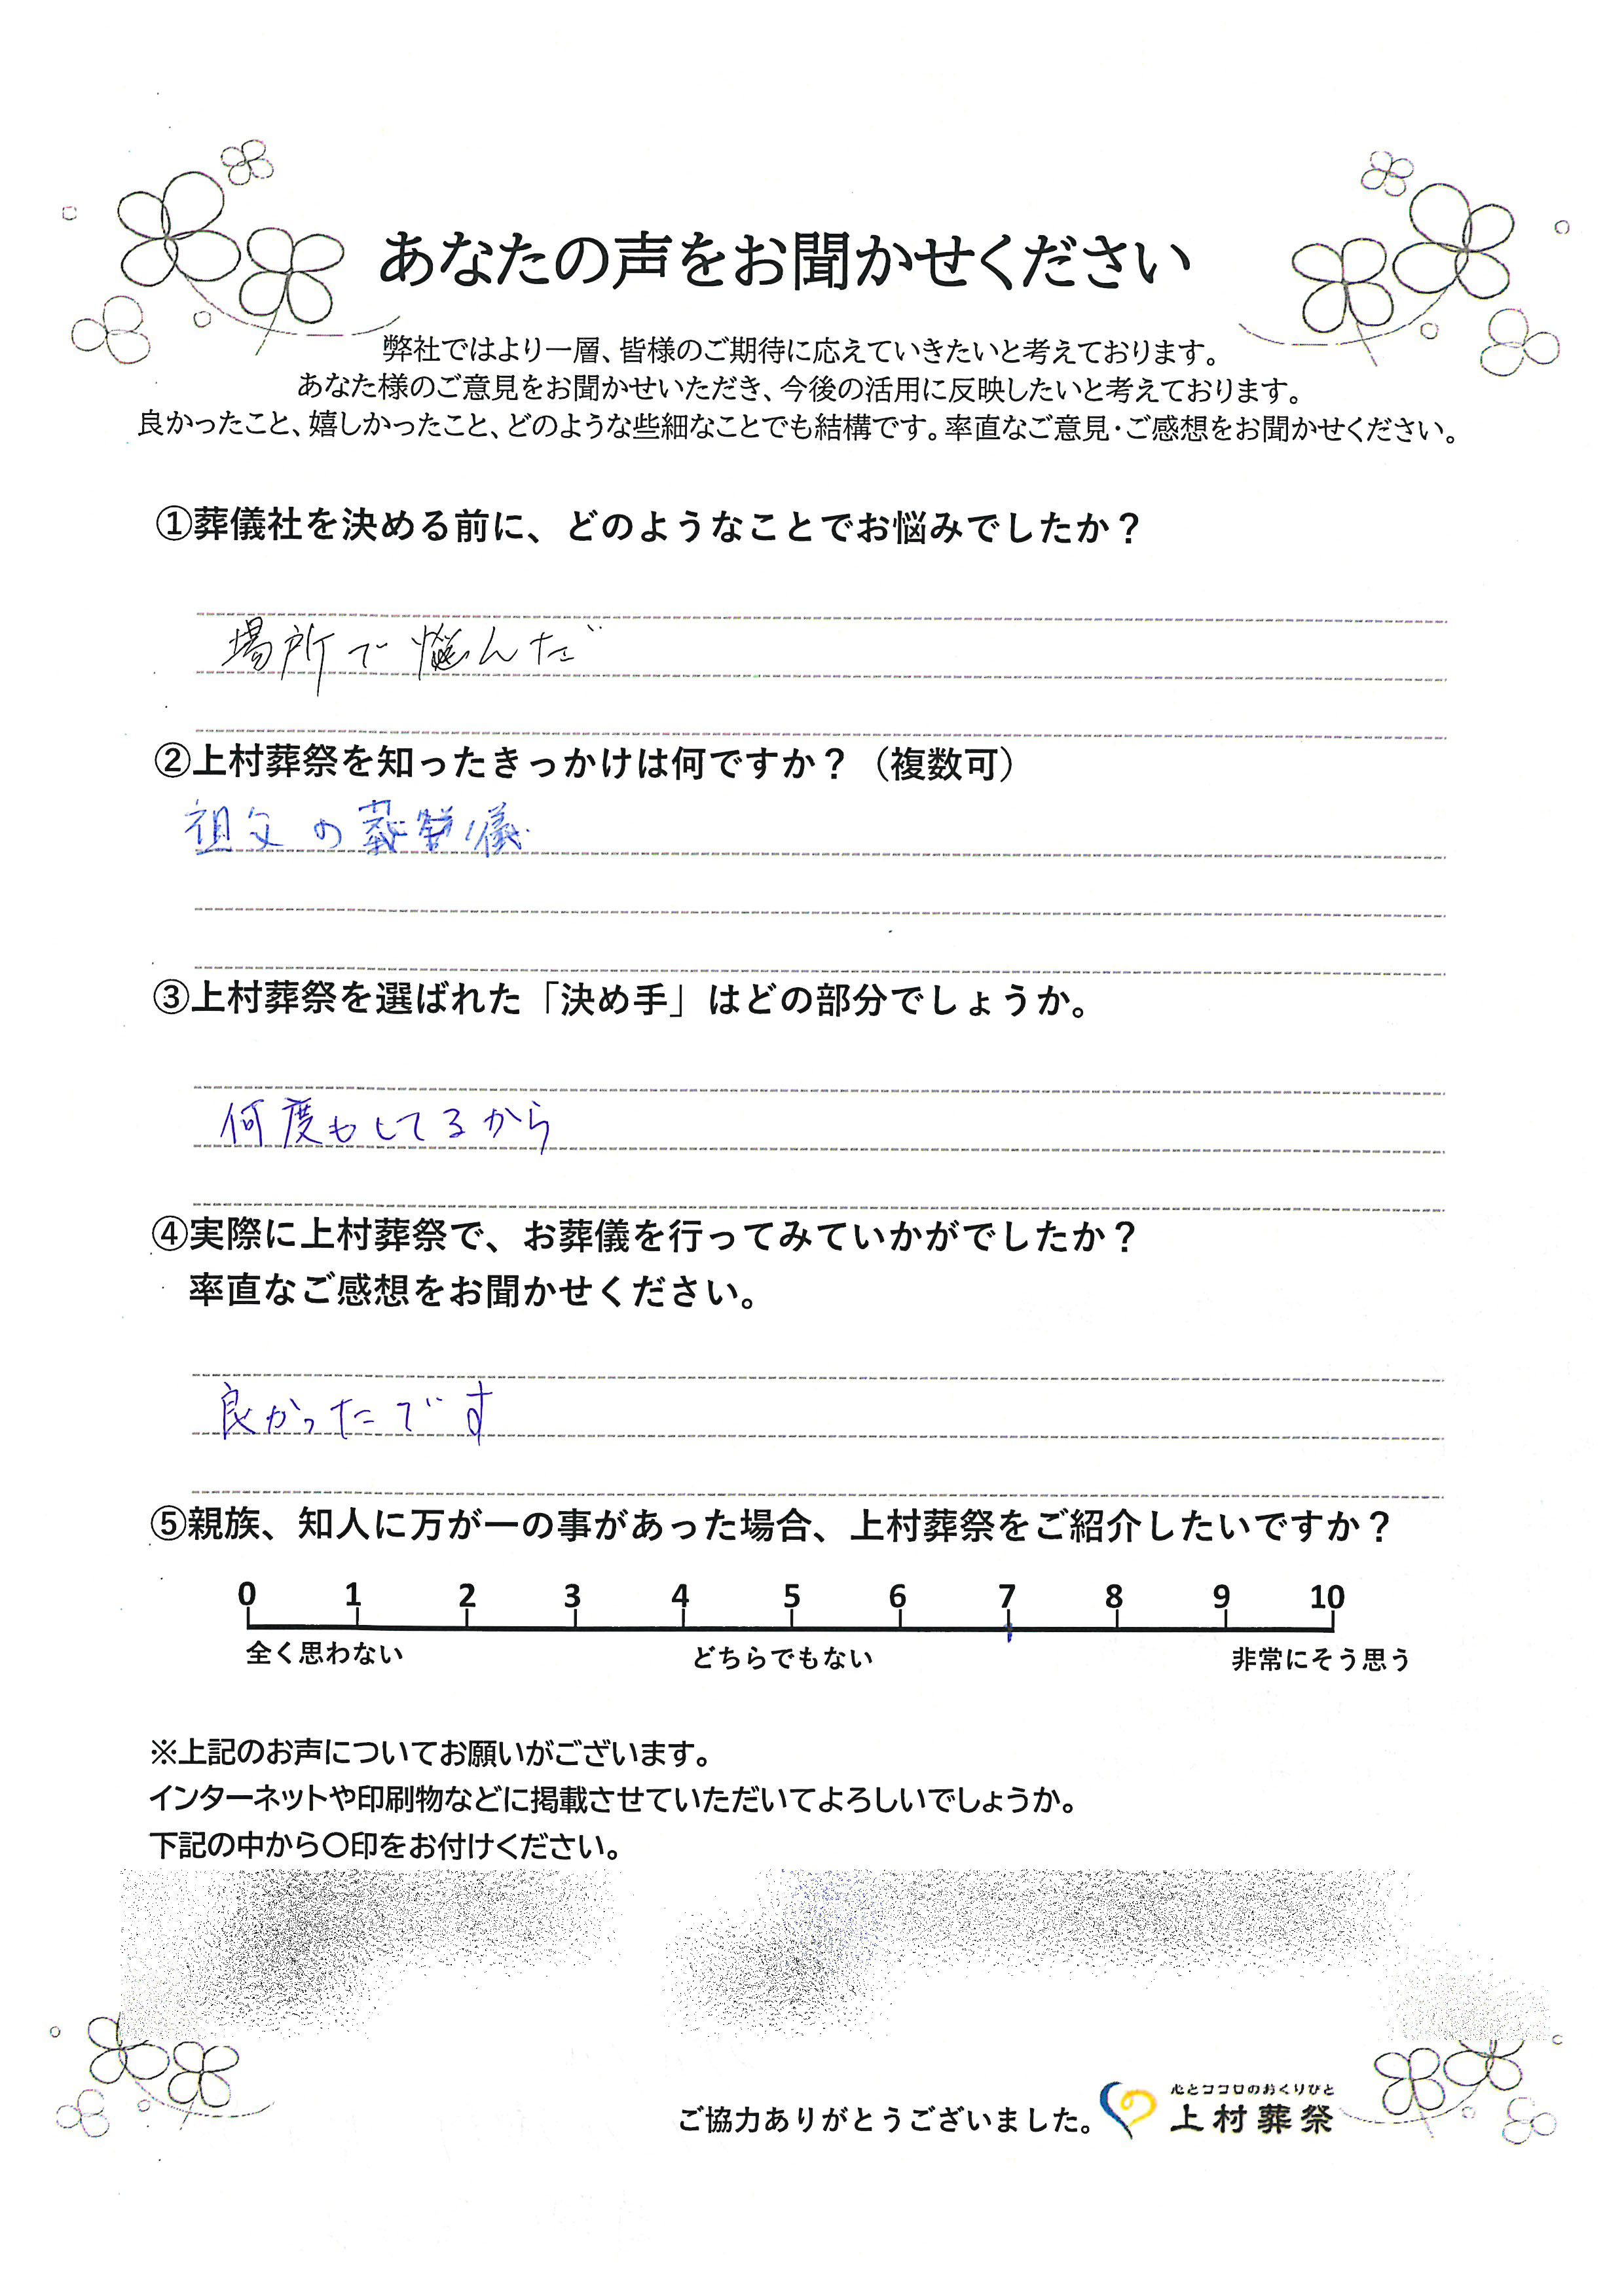 あなたの声をお聞かせください
弊社ではより一層、皆様のご期待に応えていきたいと考えております。
あなた様のご意見をお聞かせいただき、今後の活用に反映したいと考えております。
良かったこと、嬉しかったこと、どのような些細なことでも結構です。率直なご意見・ご感想をお聞かせください。
①葬儀社を決める前に、どのようなことでお悩みでしたか？
場所で悩んだ
②上村葬祭を知ったきっかけは何ですか？（複数可）
祖父の葬儀
③上村葬祭を選ばれた「決め手」はどの部分でしょうか。
何度もしてるから
④実際に上村葬祭で、お葬儀を行ってみていかがでしたか？
率直なご感想をお聞かせください。
良かったです
⑤親族、知人に万が一の事があった場合、上村葬祭をご紹介したいですか？
0 1 2 3 4 5 6 7 8 9 10
全く思わない どちらでもない 非常にそう思う
※上記のお声についてお願いがございます。
インターネットや印刷物などに掲載させていただいてよろしいでしょうか。
下記の中から〇印をお付けください。
心とココロのおくりびと
ご協力ありがとうございました。 上村葬祭